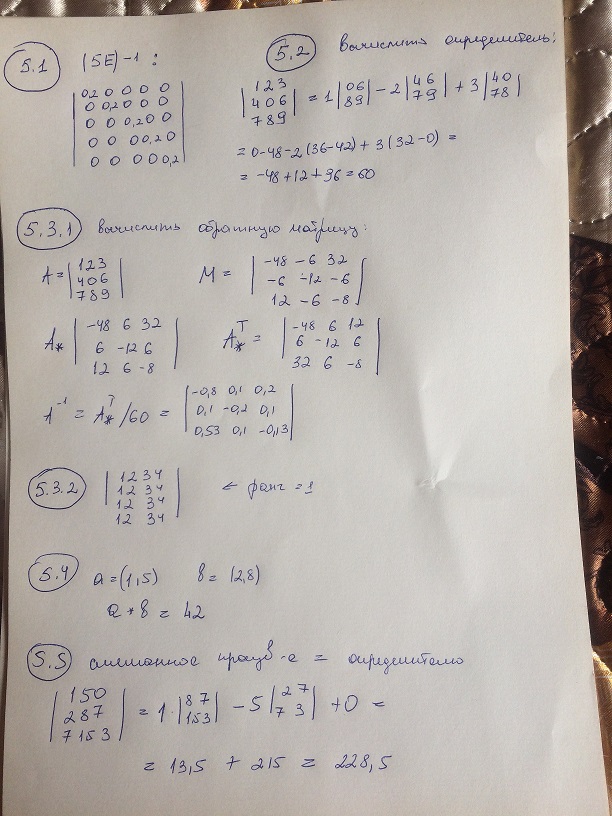 5.1 (5E)-1 :
0,2 0 0 0 0
0 0,2 0 0 0
0 0 0,2 0 0
0 0 0 0,2 0
0 0 0 0 0,2
5.2 вычислить определитель:
|1 2 3|
|4 0 6| = 1 |0 6| - 2 |4 6| + 3 |4 0|
|7 8 9| |8 9| |7 9| |7 8|
= 0-48-2(36-42)+3(32-0) =
= -48+12+96=60
5.3.1 вычислить обратную матрицу:
A = |1 2 3|
|4 0 6|
|7 8 9|
M = |-48 -6 32|
|-6 -12 -6|
|12 -6 -8|
A* |-48 6 32|
|6 -12 6|
|12 6 -8|
A*ᵀ = |-48 6 12|
|6 -12 6|
|32 6 -8|
A⁻¹ = A*ᵀ/60 = |-0,8 0,1 0,2|
|0,1 -0,2 0,1|
|0,53 0,1 -0,13|
5.3.2 |1 2 3 4|
|1 2 3 4|
|1 2 3 4|
|1 2 3 4|
← ранг = 1
5.4 a = (1,5) b = (2,8)
a * b = 42
5.5 смешанное произв-е = определителю
|1 5 0|
|2 8 7| = 1·|8 7| - 5 |2 7| + 0 =
|7 1,5 3| |1,5 3| |7 3|
= 13,5 + 215 = 228,5